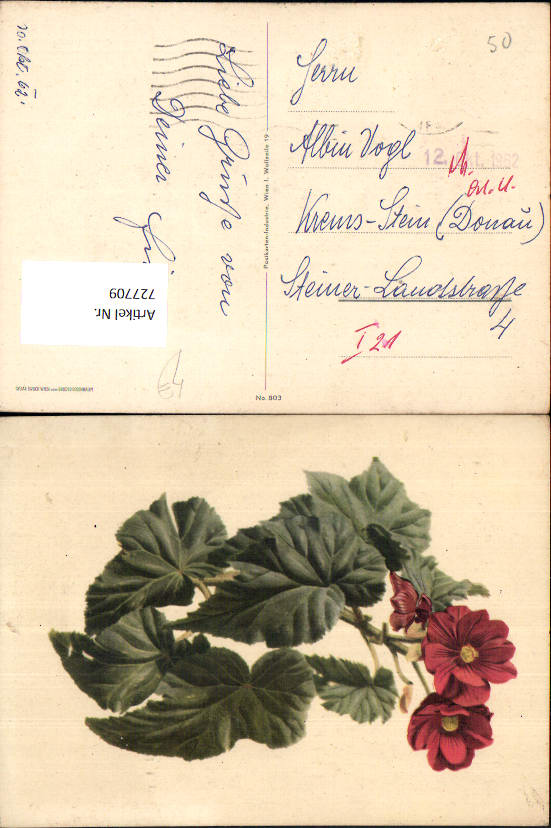 10. Okt. 62.
Liebe Grüße von
Deiner
50
Herrn
Albin Vogl
12. Okt. 1962
Krems-Stein (Donau)
Steiner-Landstraße
4
I 21
Postkarten-Industrie, Wien I. Wollzeile 19
Artikel Nr.
727709
No. 803